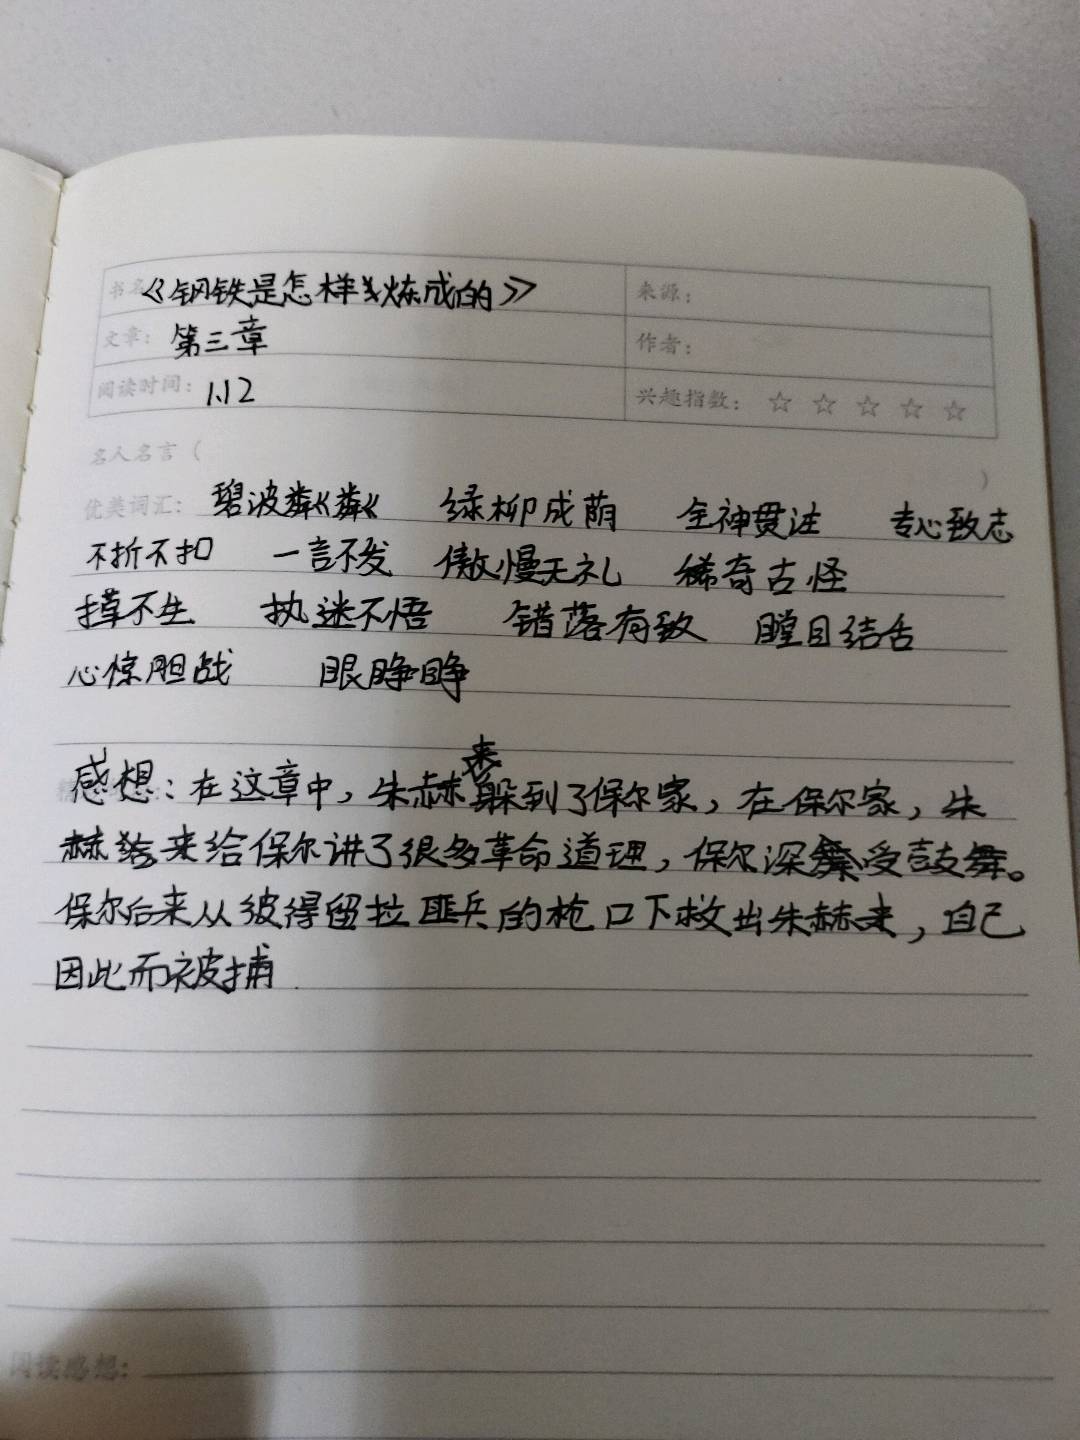 书名《钢铁是怎样炼成的》 来源：
文章：第三章 作者：
阅读时间：1.12 兴趣指数：☆ ☆ ☆ ☆ ☆
名人名言（ ）
优美词汇：碧波粼粼 绿柳成荫 全神贯注 专心致志
不折不扣 一言不发 傲慢无礼 稀奇古怪
执迷不悟 错落有致 瞠目结舌
心惊胆战 眼睁睁
感想：在这章中，朱赫来躲到了保尔家，在保尔家，朱
赫来给保尔讲了很多革命道理，保尔深受鼓舞。
保尔后来从彼得留拉匪兵的枪口下救出朱赫来，自己
因此而被捕.
阅读感想：